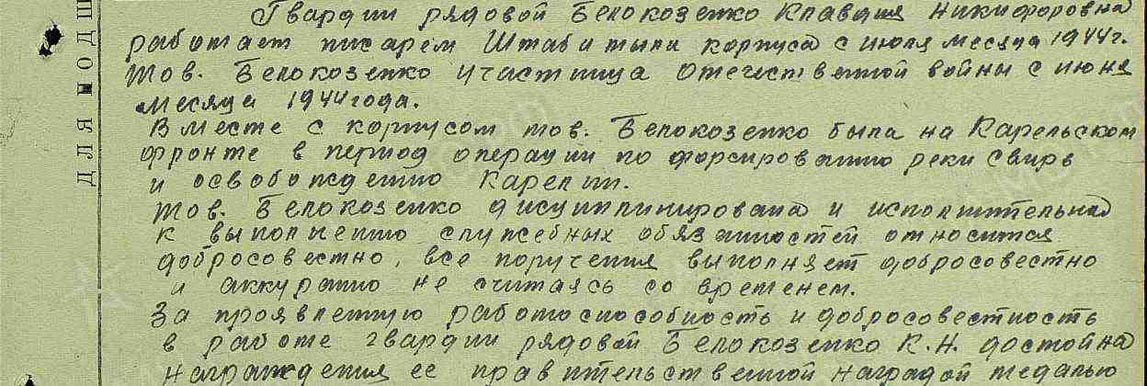 Гвардии рядовой Белокозенко Клавдия Никифоровна
работает писарем Штаба тыла корпуса с июля месяца 1944г.
Тов. Белокозенко участница Отечественной войны с июня
месяца 1944 года.
Вместе с корпусом тов. Белокозенко была на Карельском
фронте в период операции по форсированию реки Свирь
и освобождению Карелии.
Тов. Белокозенко дисциплинирована и исполнительная
к выполнению служебных обязанностей относится
добросовестно, все поручения выполняет добросовестно
и аккуратно не считаясь со временем.
За проявленную работоспособность и добросовестность
в работе гвардии рядовой Белокозенко К.Н. достойна
награждения ее правительственной наградой медалью
ДЛЯ ПОДШ